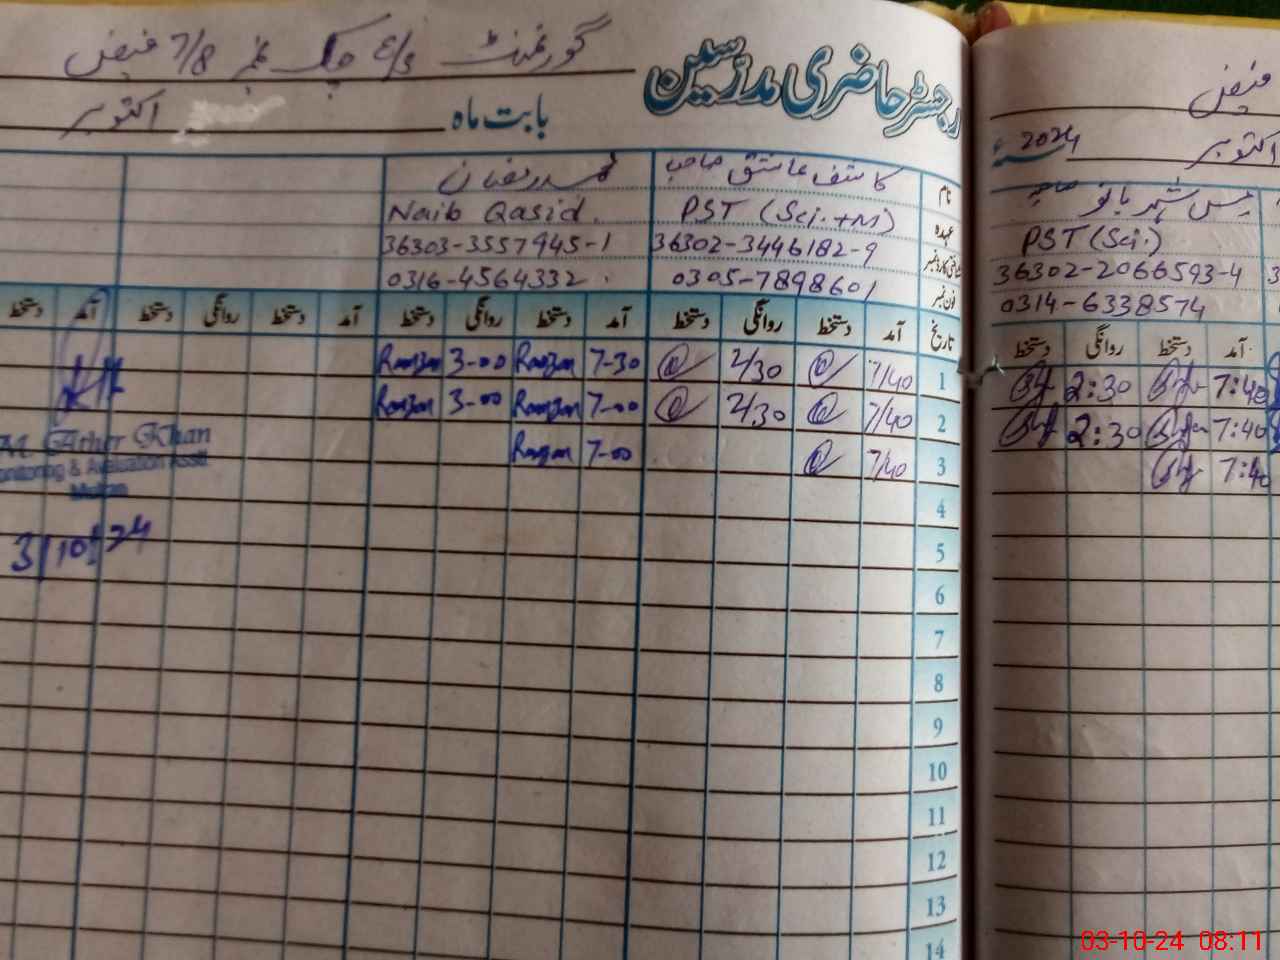 رجسٹر حاضری مدرسین
گورنمنٹ E/S چک نمبر 7/8 فیض
بابت ماہ اکتوبر
نام کاشف عاشق صاحب محمد رمضان
عہدہ PST (Sci.+M) Naib Qasid.
شناختی کارڈ نمبر 36302-3446182-9 36303-3557945-1
فون نمبر 0305-7898601 0316-4564332
تاریخ آمد دستخط روانگی دستخط آمد دستخط روانگی دستخط آمد دستخط روانگی دستخط آمد دستخط
1 7/40 2/30 7-30 Ramzan 3-00 Ramzan
2 7/40 2/30 7-00 Ramzan 3-00 Ramzan
3 7/40 7-00 Ramzan
4
5
6
7
8
9
10
11
12
13
14
M. Ather Khan
Monitoring & Evaluation Asstt.
Multan
3/10/24
فیض
اکتوبر 2024
مس شہر بانو صاحبہ
PST (Sci.)
36302-2066593-4
0314-6338574
آمد دستخط روانگی دستخط
7:40 2:30
7:40 2:30
7:40
03-10-24 08:11